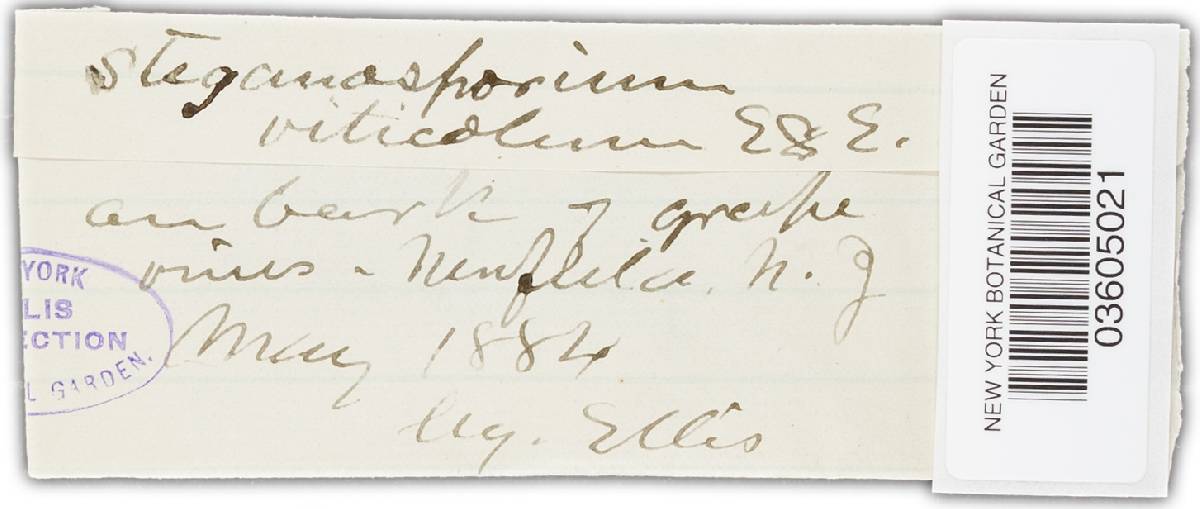 Steganosporium
viticolum E & E.
on bark of grape
vines - Newfield, N. J
May 1884
leg. Ellis
YORK
LIS
ECTION
L GARDEN.
NEW YORK BOTANICAL GARDEN
03605021